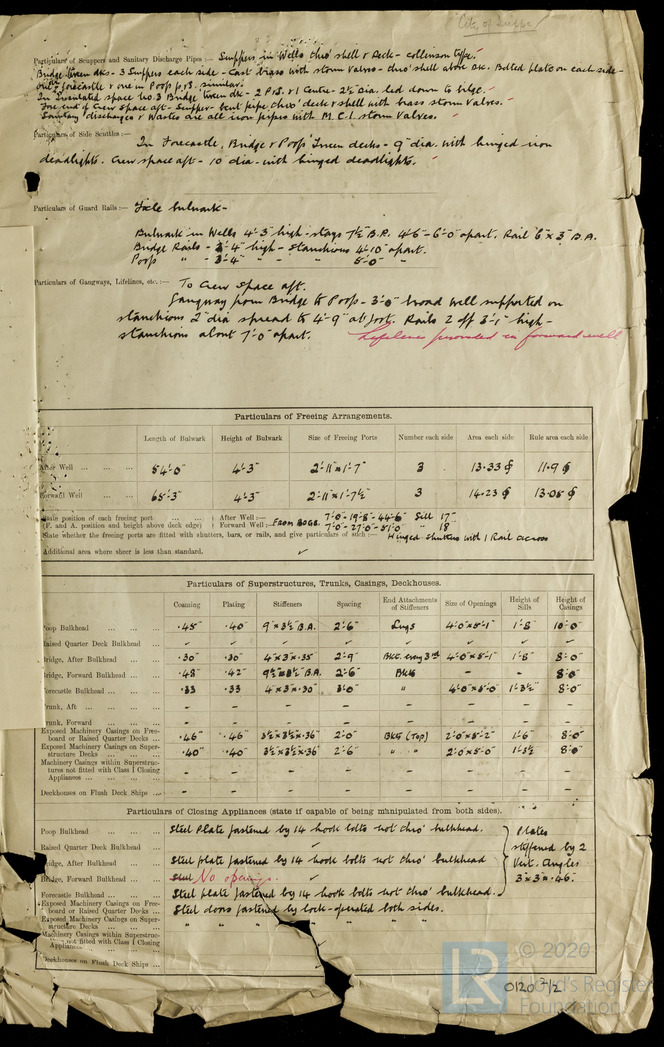 City of Dieppe
Particulars of Scuppers and Sanitary Discharge Pipes :— Scuppers in Wells thro' shell & Deck - collinson type.
Bridge tween dks - 3 Scuppers each side - Cast brass with storm valves - thro' shell above dk. Bolted plate on each side -
in forecastle & one in Poop p & s. similar.
In Insulated space No 3 Bridge tween dk - 2 P.S. & 1 Centre - 2½" dia. led down to bilge.
Fore end of Crew Space aft - Scupper - bent pipe thro' deck & shell with brass storm valves.
Sanitary discharges & Wastes are all iron pipes with M.C.I. storm valves.
Particulars of Side Scuttles :— In Forecastle, Bridge & Poop Tween decks - 9" dia. with hinged iron
deadlights. Crew space aft - 10" dia - with hinged deadlights.
Particulars of Guard Rails :— Fxcle bulwark -
Bulwark in Wells 4'-3" high - stays 7½" B.P. 4'6" - 6'-0" apart. Rail 6" x 3" B.A.
Bridge Rails - 3'-4" high - Stanchions 4'-10" apart.
Poop " - 3'-4" " - " 5'-0" "
Particulars of Gangways, Lifelines, etc. :— To Crew Space aft.
Gangway from Bridge to Poop - 3'-0" broad well supported on
stanchions 2" dia spread to 4'-9" at foot. Rails 2 off 3'-1" high -
stanchions about 7'-0" apart. Lifelines provided in forward well
Particulars of Freeing Arrangements.
Length of Bulwark Height of Bulwark Size of Freeing Ports Number each side Area each side Rule area each side
After Well ... ... ... 54'-0" 4'-3" 2'-11" x 1'-7" 3 13.33 11.9
Forward Well 65'-3" 4'-3" 2'-11" x 1'-7½" 3 14.23 13.05
State position of each freeing port ... ... After Well :— 7'-0" - 19'-8" - 44'-6" Sill 17"
(F. and A. position and height above deck edge) Forward Well :— From BDGE. 7'-0" - 27'-0" - 51'-0" " 18"
State whether the freeing ports are fitted with shutters, bars, or rails, and give particulars of such :— Hinged shutters with 1 Rail across
Additional area where sheer is less than standard. ✓
Particulars of Superstructures, Trunks, Casings, Deckhouses.
Coaming Plating Stiffeners Spacing End Attachments of Stiffeners Size of Openings Height of Sills Height of Casings
Poop Bulkhead ... ... .45" .40" 9" x 3½" B.A. 2'-6" Lugs 4'-0" x 5'-1" 1'-8" 10'-0"
Raised Quarter Deck Bulkhead ✓ ✓ ✓ ✓ ✓ ✓ ✓ ✓
Bridge, After Bulkhead ... .30" .30" 4" x 3" x .35" 2'-9" Bkt. every 3rd 4'-0" x 5'-1" 1'-8" 8'-0"
Bridge, Forward Bulkhead ... .48" .42" 9½" x 3½" B.A. 2'-6" Bkts - - 8'-0"
Forecastle Bulkhead ... ... .33 .33 4" x 3" x .30" 3'-0" " 4'-0" x 5'-0" 1'-3½" 8'-0"
Trunk, Aft ... ... ... - - - - - - - -
Trunk, Forward ... ... - - - - - - - -
Exposed Machinery Casings on Freeboard or Raised Quarter Decks ... .46" .46" 3½" x 3½" x .36" 2'-0" Bkts (Top) 2'-0" x 5'-2" 1'-6" 8'-0"
Exposed Machinery Casings on Superstructure Decks ... .40" .40" 3½" x 3½" x .36" 2'-6" " " 2'-0" x 5'-0" 1'-3½ 8'-0"
Machinery Casings within Superstructures not fitted with Class 1 Closing Appliances ... - - - - - - - -
Deckhouses on Flush Deck Ships ... - - - - - - - -
Particulars of Closing Appliances (state if capable of being manipulated from both sides).
Poop Bulkhead ... ... Steel Plate fastened by 14 hook bolts not thro' bulkhead.
Raised Quarter Deck Bulkhead ✓
Bridge, After Bulkhead ... Steel plate fastened by 14 hook bolts not thro' bulkhead
Bridge, Forward Bulkhead ... Steel No openings. ✓
Forecastle Bulkhead ... ... Steel plate fastened by 14 hook bolts not thro' bulkhead.
Plates
stiffened by 2
Vert. Angles
3" x 3" x .46.
Exposed Machinery Casings on Freeboard or Raised Quarter Decks ... Steel doors fastened by lock - operated both sides.
Exposed Machinery Casings on Superstructure Decks ... " " " " " " "
Machinery Casings within Superstructures not fitted with Class 1 Closing Appliances
Deckhouses on Flush Deck Ships ...
LR
© 2020
Lloyd's Register
Foundation
0120 2/2